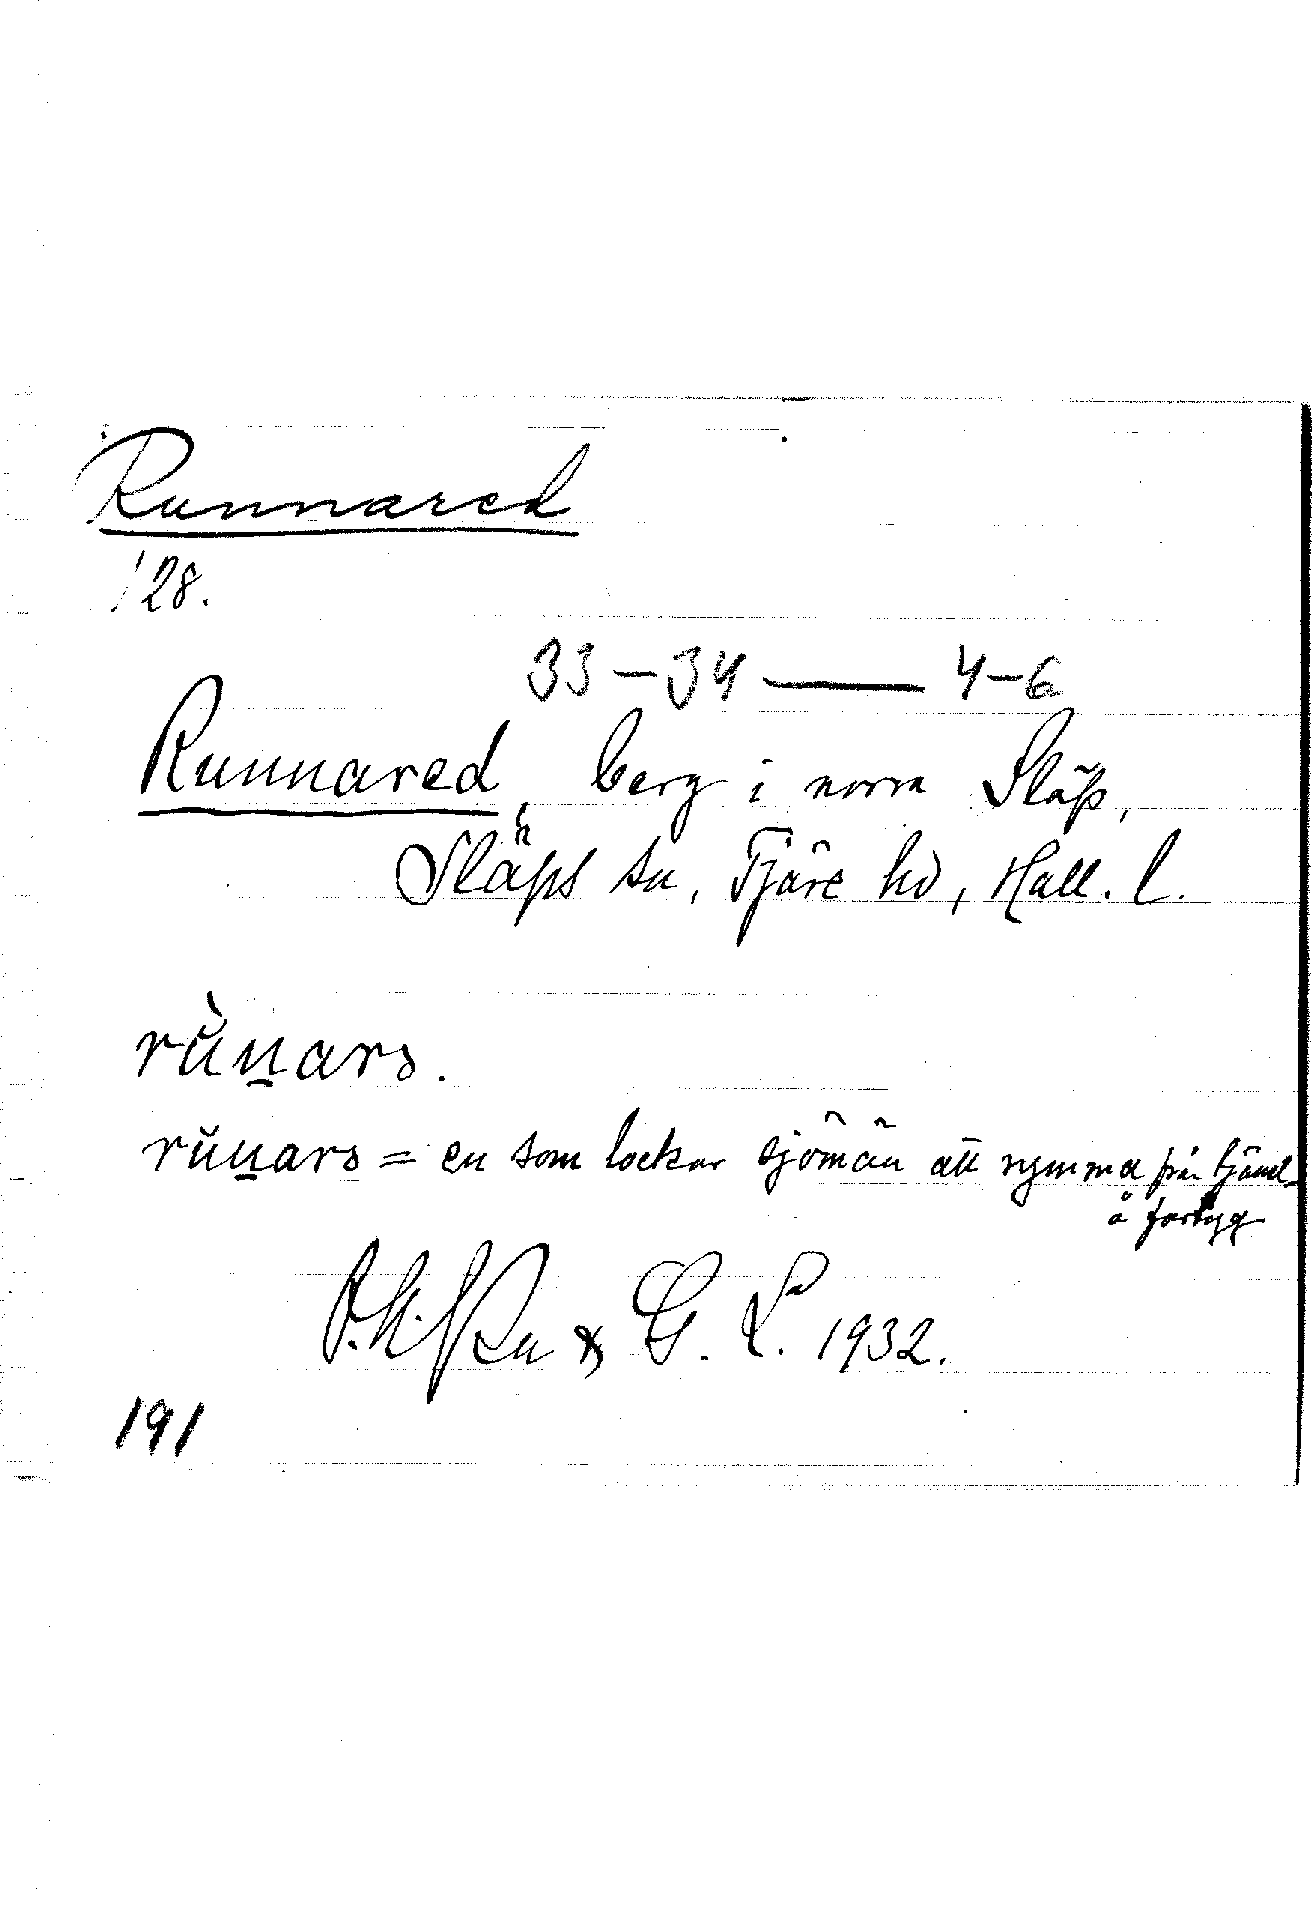 Runnared
128.
33-34 — 4-6
Runnared, berg i norra Släp,
Släps sn, Fjäre hd, Hall. l.
rùn̲ars.
rŭn̲ars = en som lockar sjömän att rymma från tjänst
å fartyg
& G. L. 1932.
191